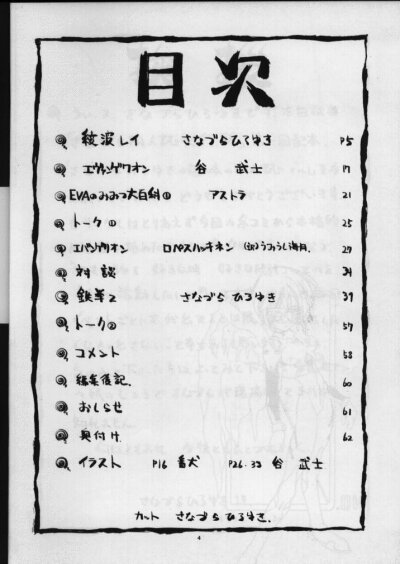 目次
綾波レイ さなづらひろゆき P5
エヴンゲワオン 谷 武士 17
EVAのみみつ大百科① アストラ 21
トーク① 25
エバンゲリオン ロペスハッキネン 29
対談 34
鉄拳2 さなづらひろゆき 39
トーク② 57
コメント 58
編集後記. 60
おしらせ 61
奥付け. 62
イラスト P16 番犬 P26.38 谷 武士
カット さなづらひろゆき.
4